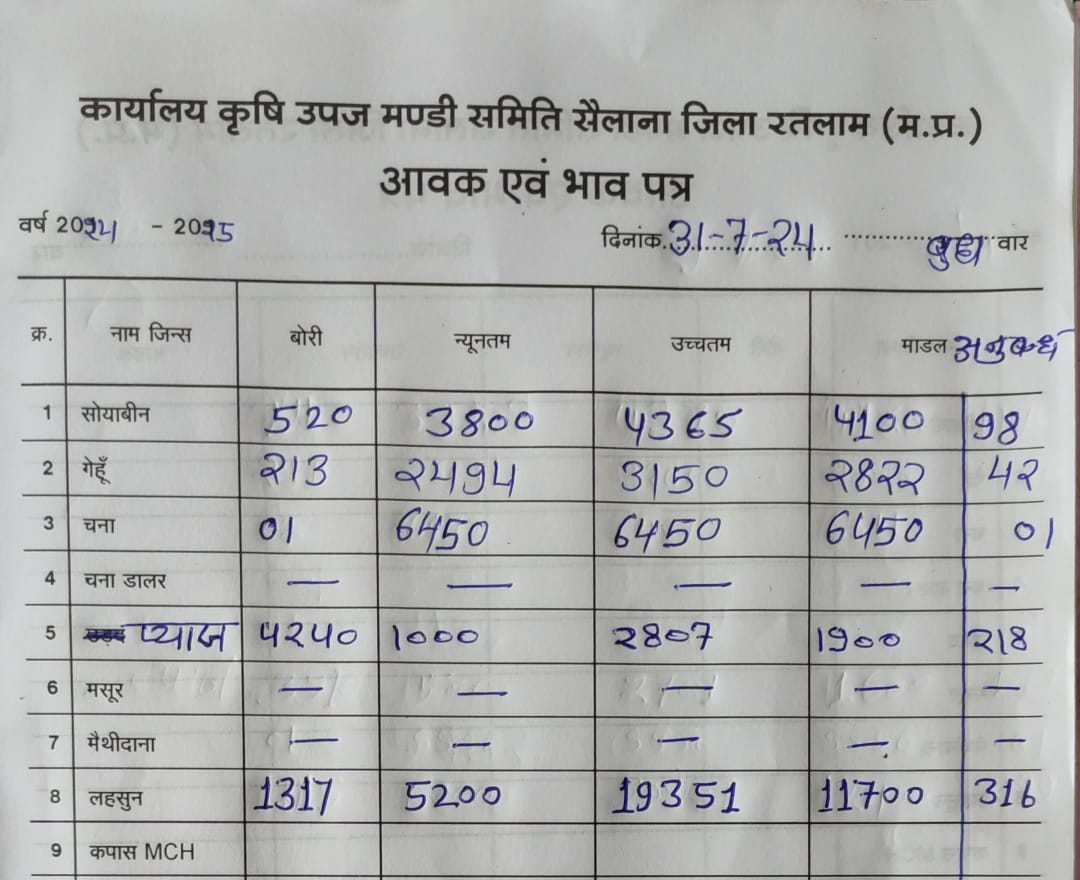 कार्यालय कृषि उपज मण्डी समिति सैलाना जिला रतलाम (म.प्र.)
आवक एवं भाव पत्र
वर्ष 2024 - 2025 दिनांक 31-7-24 बुध वार
क्र. नाम जिन्स बोरी न्यूनतम उच्चतम माडल अनुबन्ध
1 सोयाबीन 520 3800 4365 4100 98
2 गेहूँ 213 2494 3150 2822 42
3 चना 01 6450 6450 6450 01
4 चना डालर — — — — —
5 प्याज 4240 1000 2807 1900 218
6 मसूर — — — — —
7 मैथीदाना — — — — —
8 लहसुन 1317 5200 19351 11700 316
9 कपास MCH